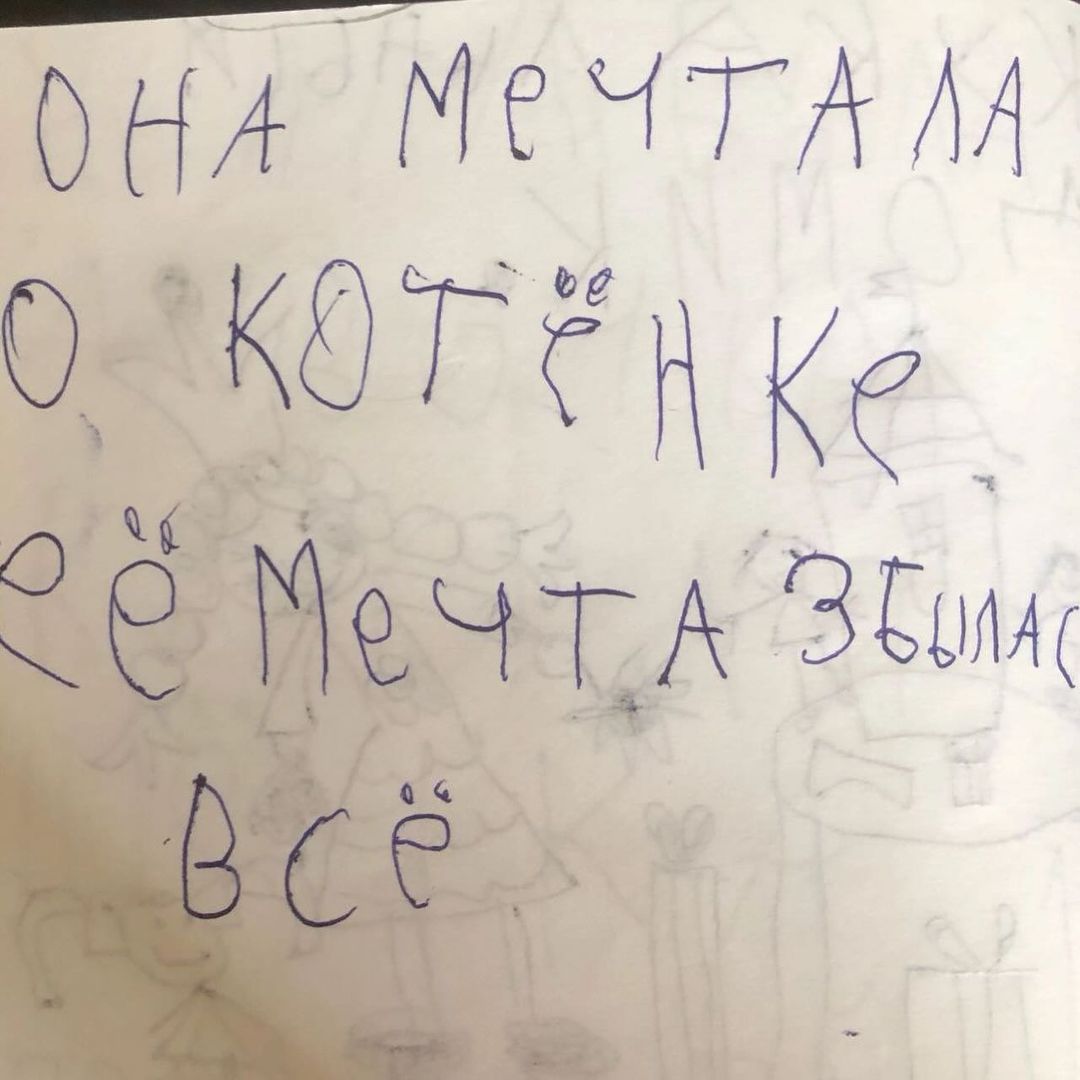 ОНА МЕЧТАЛА
О КОТЁНКЕ
ЕЁ МЕЧТА ЗБЫЛАС
ВСЁ